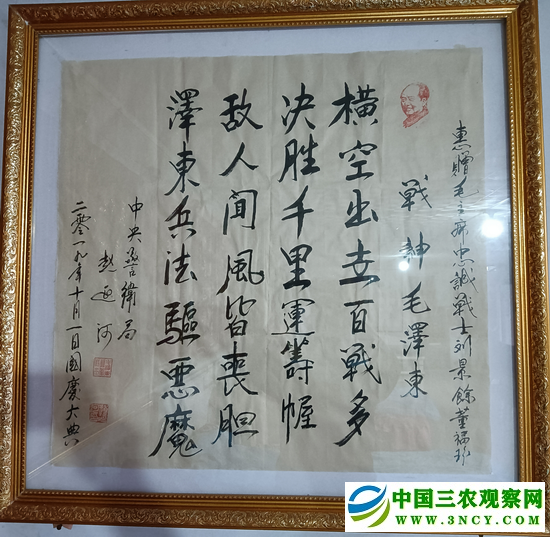 惠贈毛主席忠誠戰士刘景餘董福珍
戰神毛澤東
横空出世百戰多
决胜千里運籌幄
敌人闻風皆喪胆
澤東兵法驅悪魔
中央警衛局
赵
二零一九年十月一日國慶大典
中国三农观察网
WWW.3NCY.COM